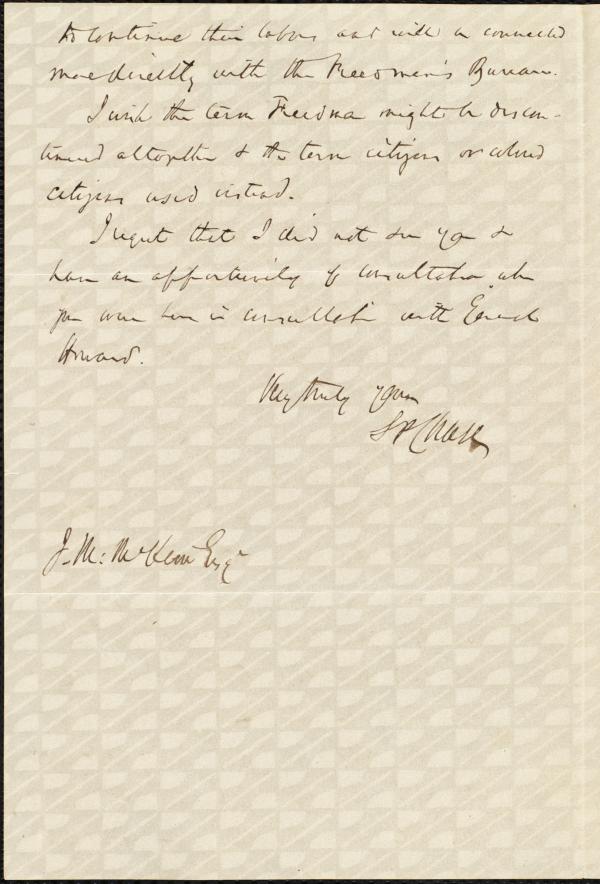 to continue their labors and will be connected
more directly with the Freedmen's Bureau.
I wish the term Freedman might be discon-
tinued altogether & the term citizens or colored
citizens used instead.
I regret that I did not see you &
have an opportunity of consultation when
you were here in consultation with General
Howard.
Very truly yours
S P Chase
J. M: McKim Esqr